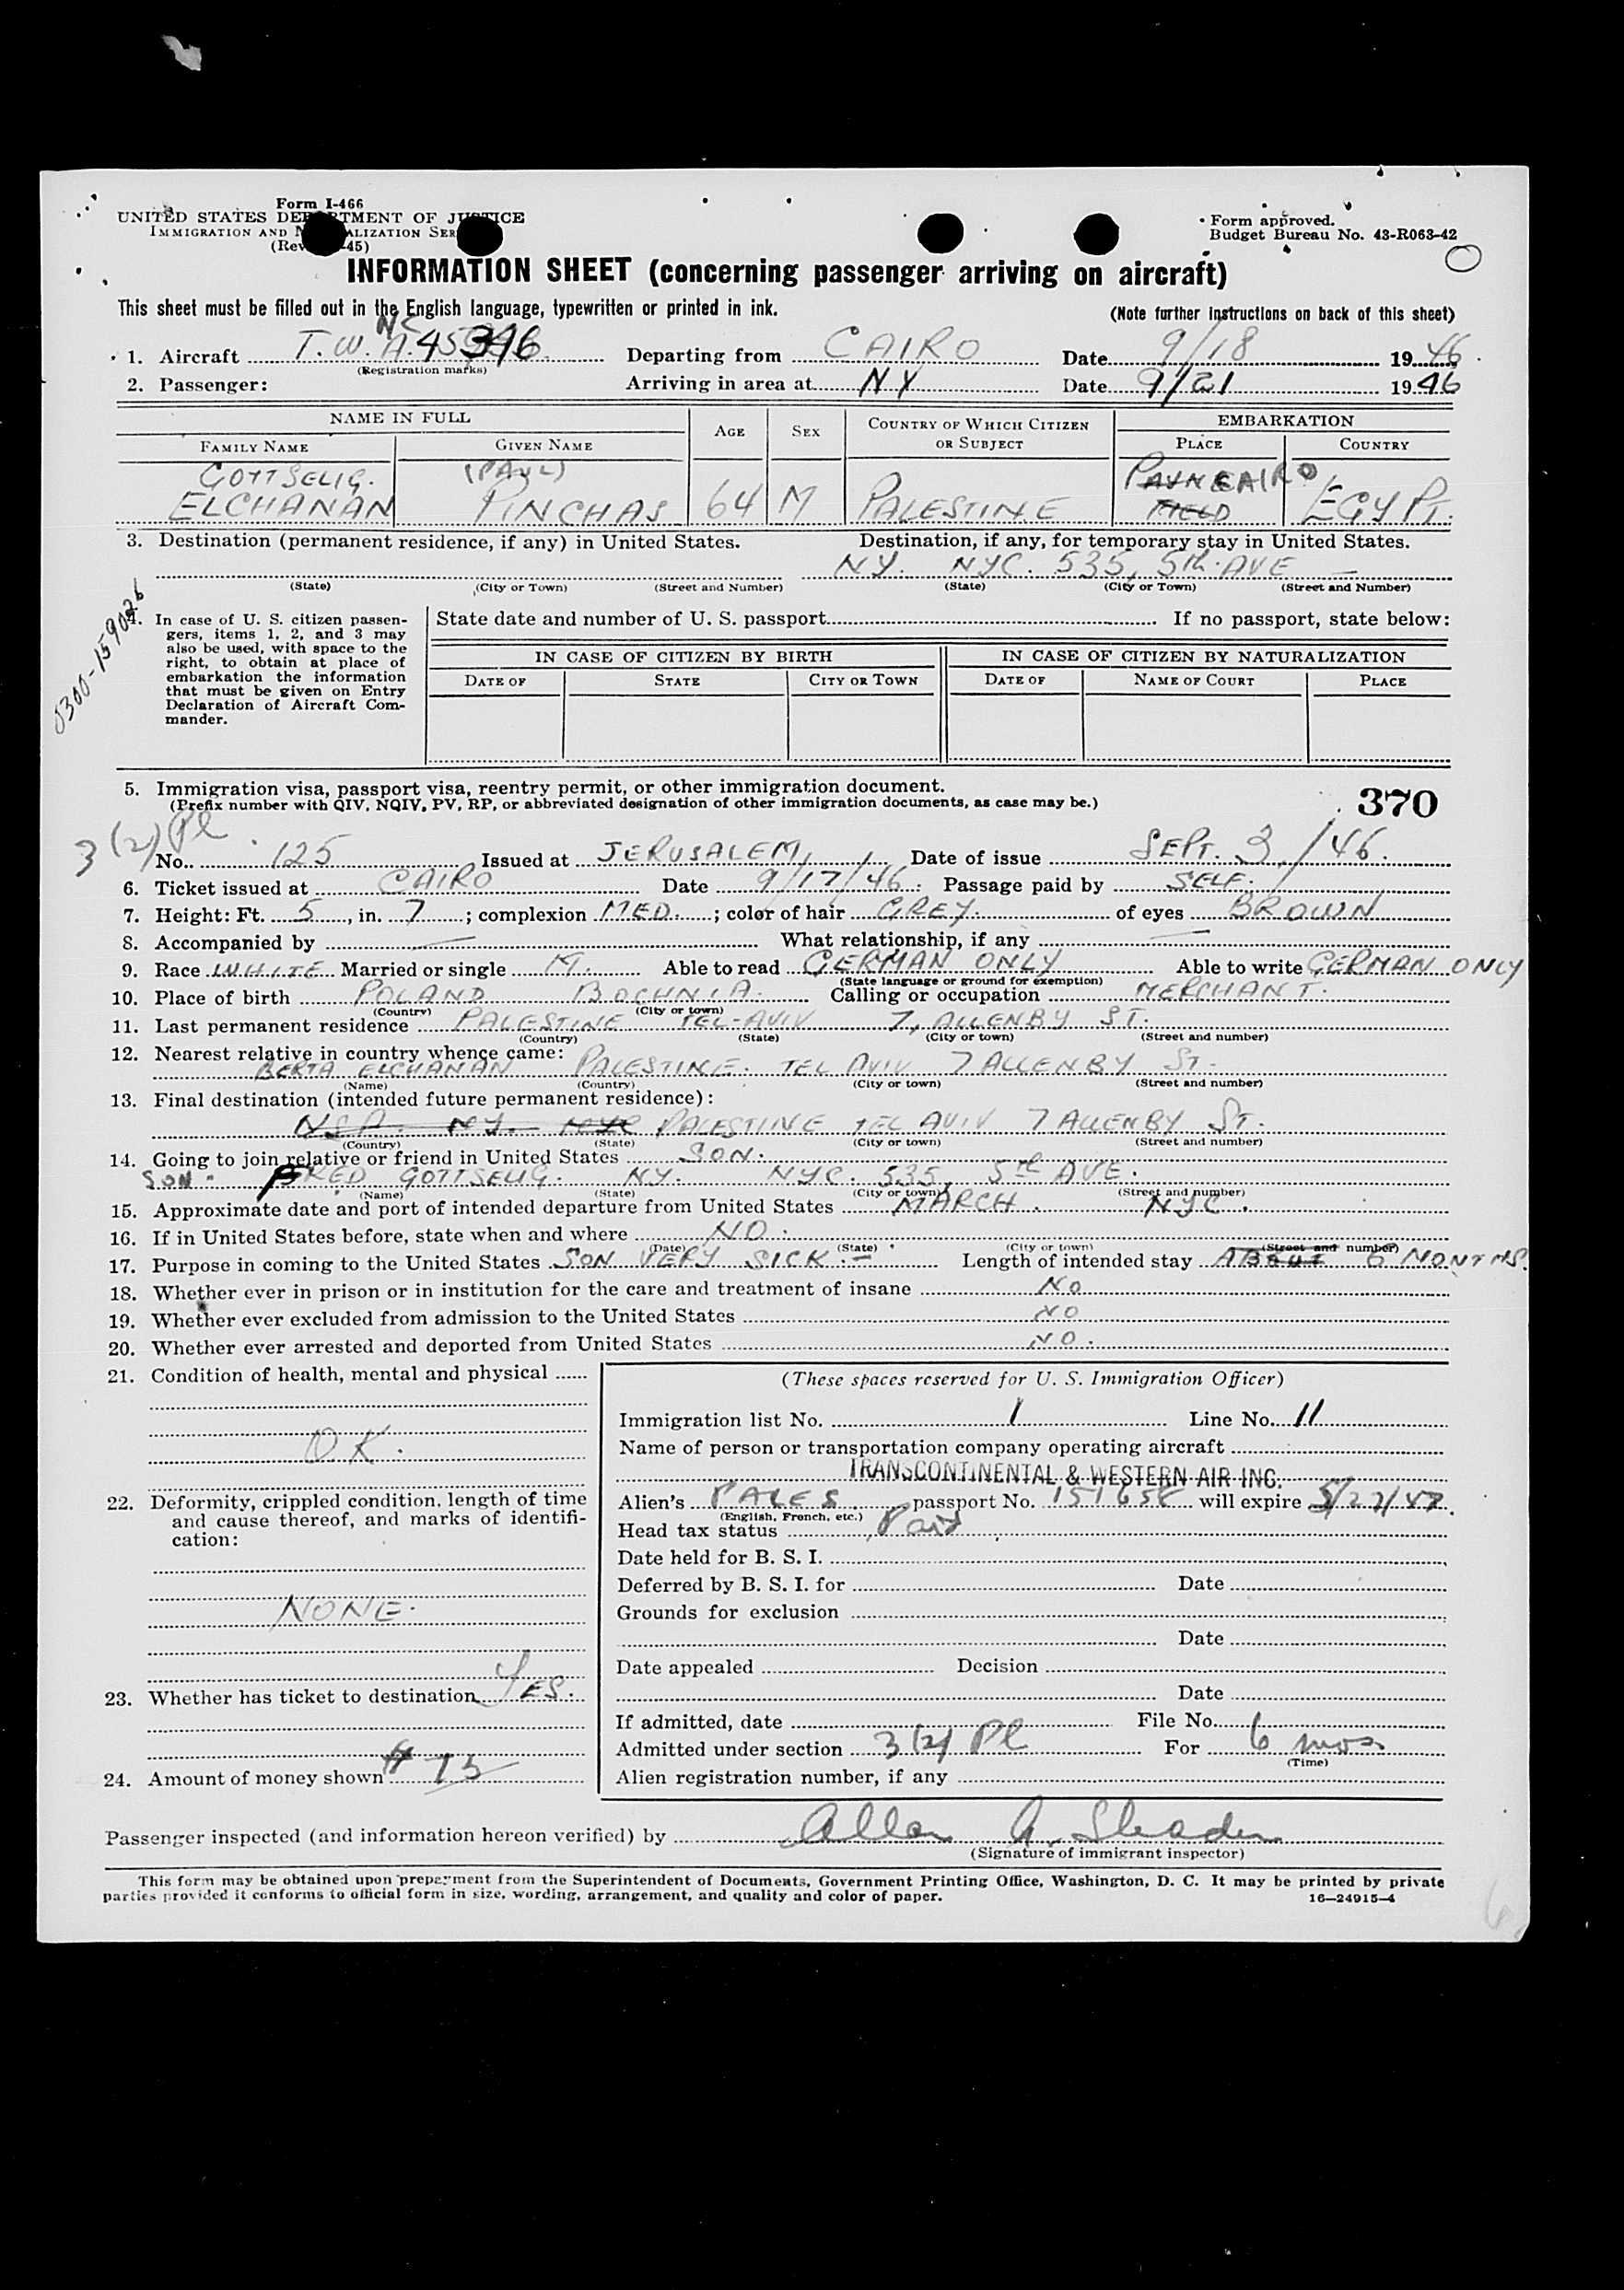 Form I-466
UNITED STATES DEPARTMENT OF JUSTICE
IMMIGRATION AND NATURALIZATION SER
(Rev. -45)
Form approved.
Budget Bureau No. 43-R063-42
INFORMATION SHEET (concerning passenger arriving on aircraft)
This sheet must be filled out in the English language, typewritten or printed in ink.
(Note further instructions on back of this sheet)
NC
1. Aircraft T.W.A. 45 346 Departing from CAIRO Date 9/18 1946.
(Registration marks)
2. Passenger: Arriving in area at NY Date 9/21 1946
NAME IN FULL AGE SEX COUNTRY OF WHICH CITIZEN OR SUBJECT EMBARKATION
FAMILY NAME GIVEN NAME PLACE COUNTRY
GOTTSELIG. (PAUL) PAYNE CAIRO
ELCHANAN PINCHAS 64 M PALESTINE FIELD EGYPT.
3. Destination (permanent residence, if any) in United States. Destination, if any, for temporary stay in United States.
NY. NYC. 535, 5th AVE —
(State) (City or Town) (Street and Number) (State) (City or Town) (Street and Number)
0300-159026
4. In case of U. S. citizen passen-
gers, items 1, 2, and 3 may
also be used, with space to the
right, to obtain at place of
embarkation the information
that must be given on Entry
Declaration of Aircraft Com-
mander.
State date and number of U. S. passport If no passport, state below:
IN CASE OF CITIZEN BY BIRTH IN CASE OF CITIZEN BY NATURALIZATION
DATE OF STATE CITY OR TOWN DATE OF NAME OF COURT PLACE
5. Immigration visa, passport visa, reentry permit, or other immigration document.
(Prefix number with QIV, NQIV, PV, RP, or abbreviated designation of other immigration documents, as case may be.)
370
3 (2) Pl
No. 125 Issued at JERUSALEM, Date of issue SEPT. 3, /46.
6. Ticket issued at CAIRO Date 9/17/46. Passage paid by SELF.
7. Height: Ft. 5, in. 7; complexion MED.; color of hair GREY. of eyes BROWN
8. Accompanied by — What relationship, if any —
9. Race WHITE Married or single M. Able to read GERMAN ONLY Able to write GERMAN ONLY
(State language or ground for exemption)
10. Place of birth POLAND BOCHNIA. Calling or occupation MERCHANT.
(Country) (City or town)
11. Last permanent residence PALESTINE TEL-AVIV 7, ALLENBY ST.
(Country) (State) (City or town) (Street and number)
12. Nearest relative in country whence came:
BERTA ELCHANAN PALESTINE. TEL AVIV 7 ALLENBY ST.
(Name) (Country) (City or town) (Street and number)
13. Final destination (intended future permanent residence):
USA. NY. NYC PALESTINE TEL AVIV 7 ALLENBY ST.
(Country) (State) (City or town) (Street and number)
14. Going to join relative or friend in United States SON.
SON. FRED GOTTSELIG. NY. NYC. 535, 5th AVE.
(Name) (State) (City or town) (Street and number)
15. Approximate date and port of intended departure from United States MARCH. NYC.
16. If in United States before, state when and where NO.
(Date) (State) (City or town) (Street and number)
17. Purpose in coming to the United States SON VERY SICK.— Length of intended stay ABOUT 6 MONTHS.
18. Whether ever in prison or in institution for the care and treatment of insane NO
19. Whether ever excluded from admission to the United States NO
20. Whether ever arrested and deported from United States NO.
21. Condition of health, mental and physical
O.K.
22. Deformity, crippled condition, length of time
and cause thereof, and marks of identifi-
cation:
NONE.
23. Whether has ticket to destination YES.
24. Amount of money shown $ 75
(These spaces reserved for U. S. Immigration Officer)
Immigration list No. 1 Line No. 11
Name of person or transportation company operating aircraft
TRANSCONTINENTAL & WESTERN AIR INC.
Alien's PALES. passport No. 151658 will expire 5/27/47.
(English, French, etc.)
Head tax status Paid
Date held for B. S. I.
Deferred by B. S. I. for Date
Grounds for exclusion
Date
Date appealed Decision
Date
If admitted, date File No.
Admitted under section 3(2) Pl For 6 mos.
(Time)
Alien registration number, if any
Passenger inspected (and information hereon verified) by Allan
(Signature of immigrant inspector)
This form may be obtained upon prepayment from the Superintendent of Documents, Government Printing Office, Washington, D. C. It may be printed by private
parties provided it conforms to official form in size, wording, arrangement, and quality and color of paper. 16—24915-4